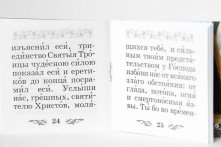 изъясни́лъ еси́, три-
еди́нство Святы́я Тро́-
ицы чуде́сною си́лою
показа́лъ еси́ и ерети-
ко́въ до конца́ посра-
ми́лъ еси́. Услы́ши
на́съ, гре́шных, святи́-
телю Христо́въ, моля́-
24
щихся тебе́, и си́ль-
ным твои́м предста́-
тельством у Го́спода
изба́ви на́с от вся́каго
зла́го обстоя́ния: от
гла́да, пото́па, огня́
и смертоно́сныя я́з-
вы. Ты́ бо во вре́мен-
25